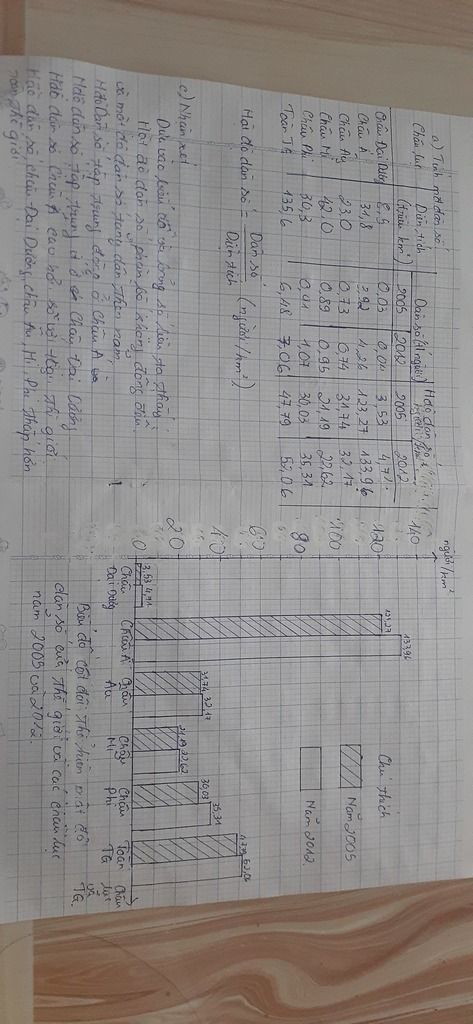 a) Tính mật độ dân số
Châu lục Diện tích (triệu km²) Dân số (tỉ người) Mật độ dân số
2005 2012 2005 2012
Châu Đại Dương 8,5 0,03 0,04 3,53 4,71
Châu Á 31,8 3,92 4,26 123,27 133,96
Châu Âu 23,0 0,73 0,74 31,74 32,17
Châu Mĩ 42,0 0,89 0,95 21,19 22,62
Châu Phi 30,3 0,91 1,07 30,03 35,31
Toàn TG 135,6 6,48 7,06 47,79 52,06
Mật độ dân số = Dân số / Diện tích (người/km²)
c) Nhận xét
Dựa vào biểu đồ và bảng số liệu ta thấy:
Mật độ dân số phân số không đồng đều.
và mật độ dân số tăng dần theo năm.
Mật độ dân số tập trung đông ở Châu Á
Mật độ dân số tập trung ở Châu Đại Dương
Mật độ dân số Châu Á cao hơn so với toàn thế giới
Mật độ dân số châu Đại Dương, châu Âu, Mĩ, Phi thấp hơn
toàn thế giới.
người/km²
140
120
100
80
60
40
20
0
3,53 4,71
123,27 133,96
31,74 32,17
21,19 22,62
30,03 35,31
47,79 52,06
Châu Đại Dương
Châu Á
Châu Âu
Châu Mĩ
Châu Phi
Toàn TG
Châu lục và TG
Chú thích
Năm 2005
Năm 2012
Biểu đồ cột đôi thể hiện mật độ
dân số của thế giới và các châu lục
năm 2005 và 2012.